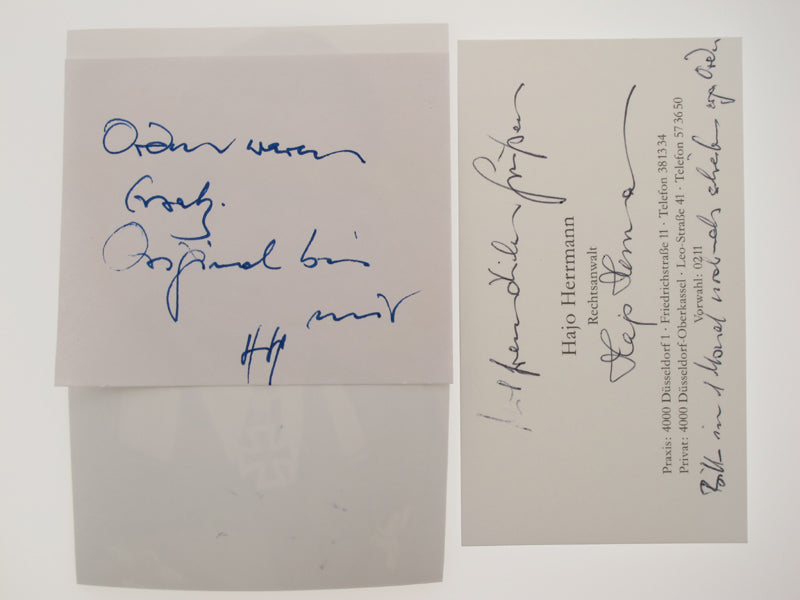 Orden waren
Ersatz.
Original bin
mir
HH
Mit freundlichen Grüßen
Hajo Herrmann
Rechtsanwalt
Hajo Herrmann
Praxis: 4000 Düsseldorf 1 · Friedrichstraße 11 · Telefon 381334
Privat: 4000 Düsseldorf-Oberkassel · Leo-Straße 41 · Telefon 573650
Vorwahl: 0211
Bitte in 1 Monat nochmals schreiben wg. Orden